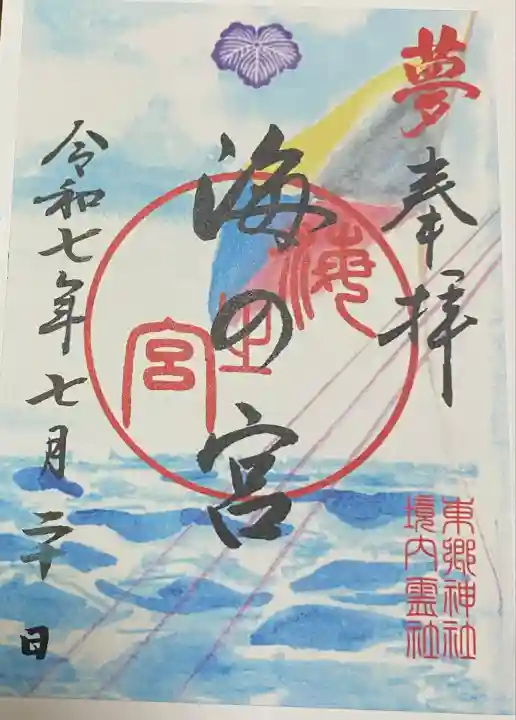 夢
奉拝
海の宮
海
宮
令和七年七月二十日
東郷神社
境内霊社